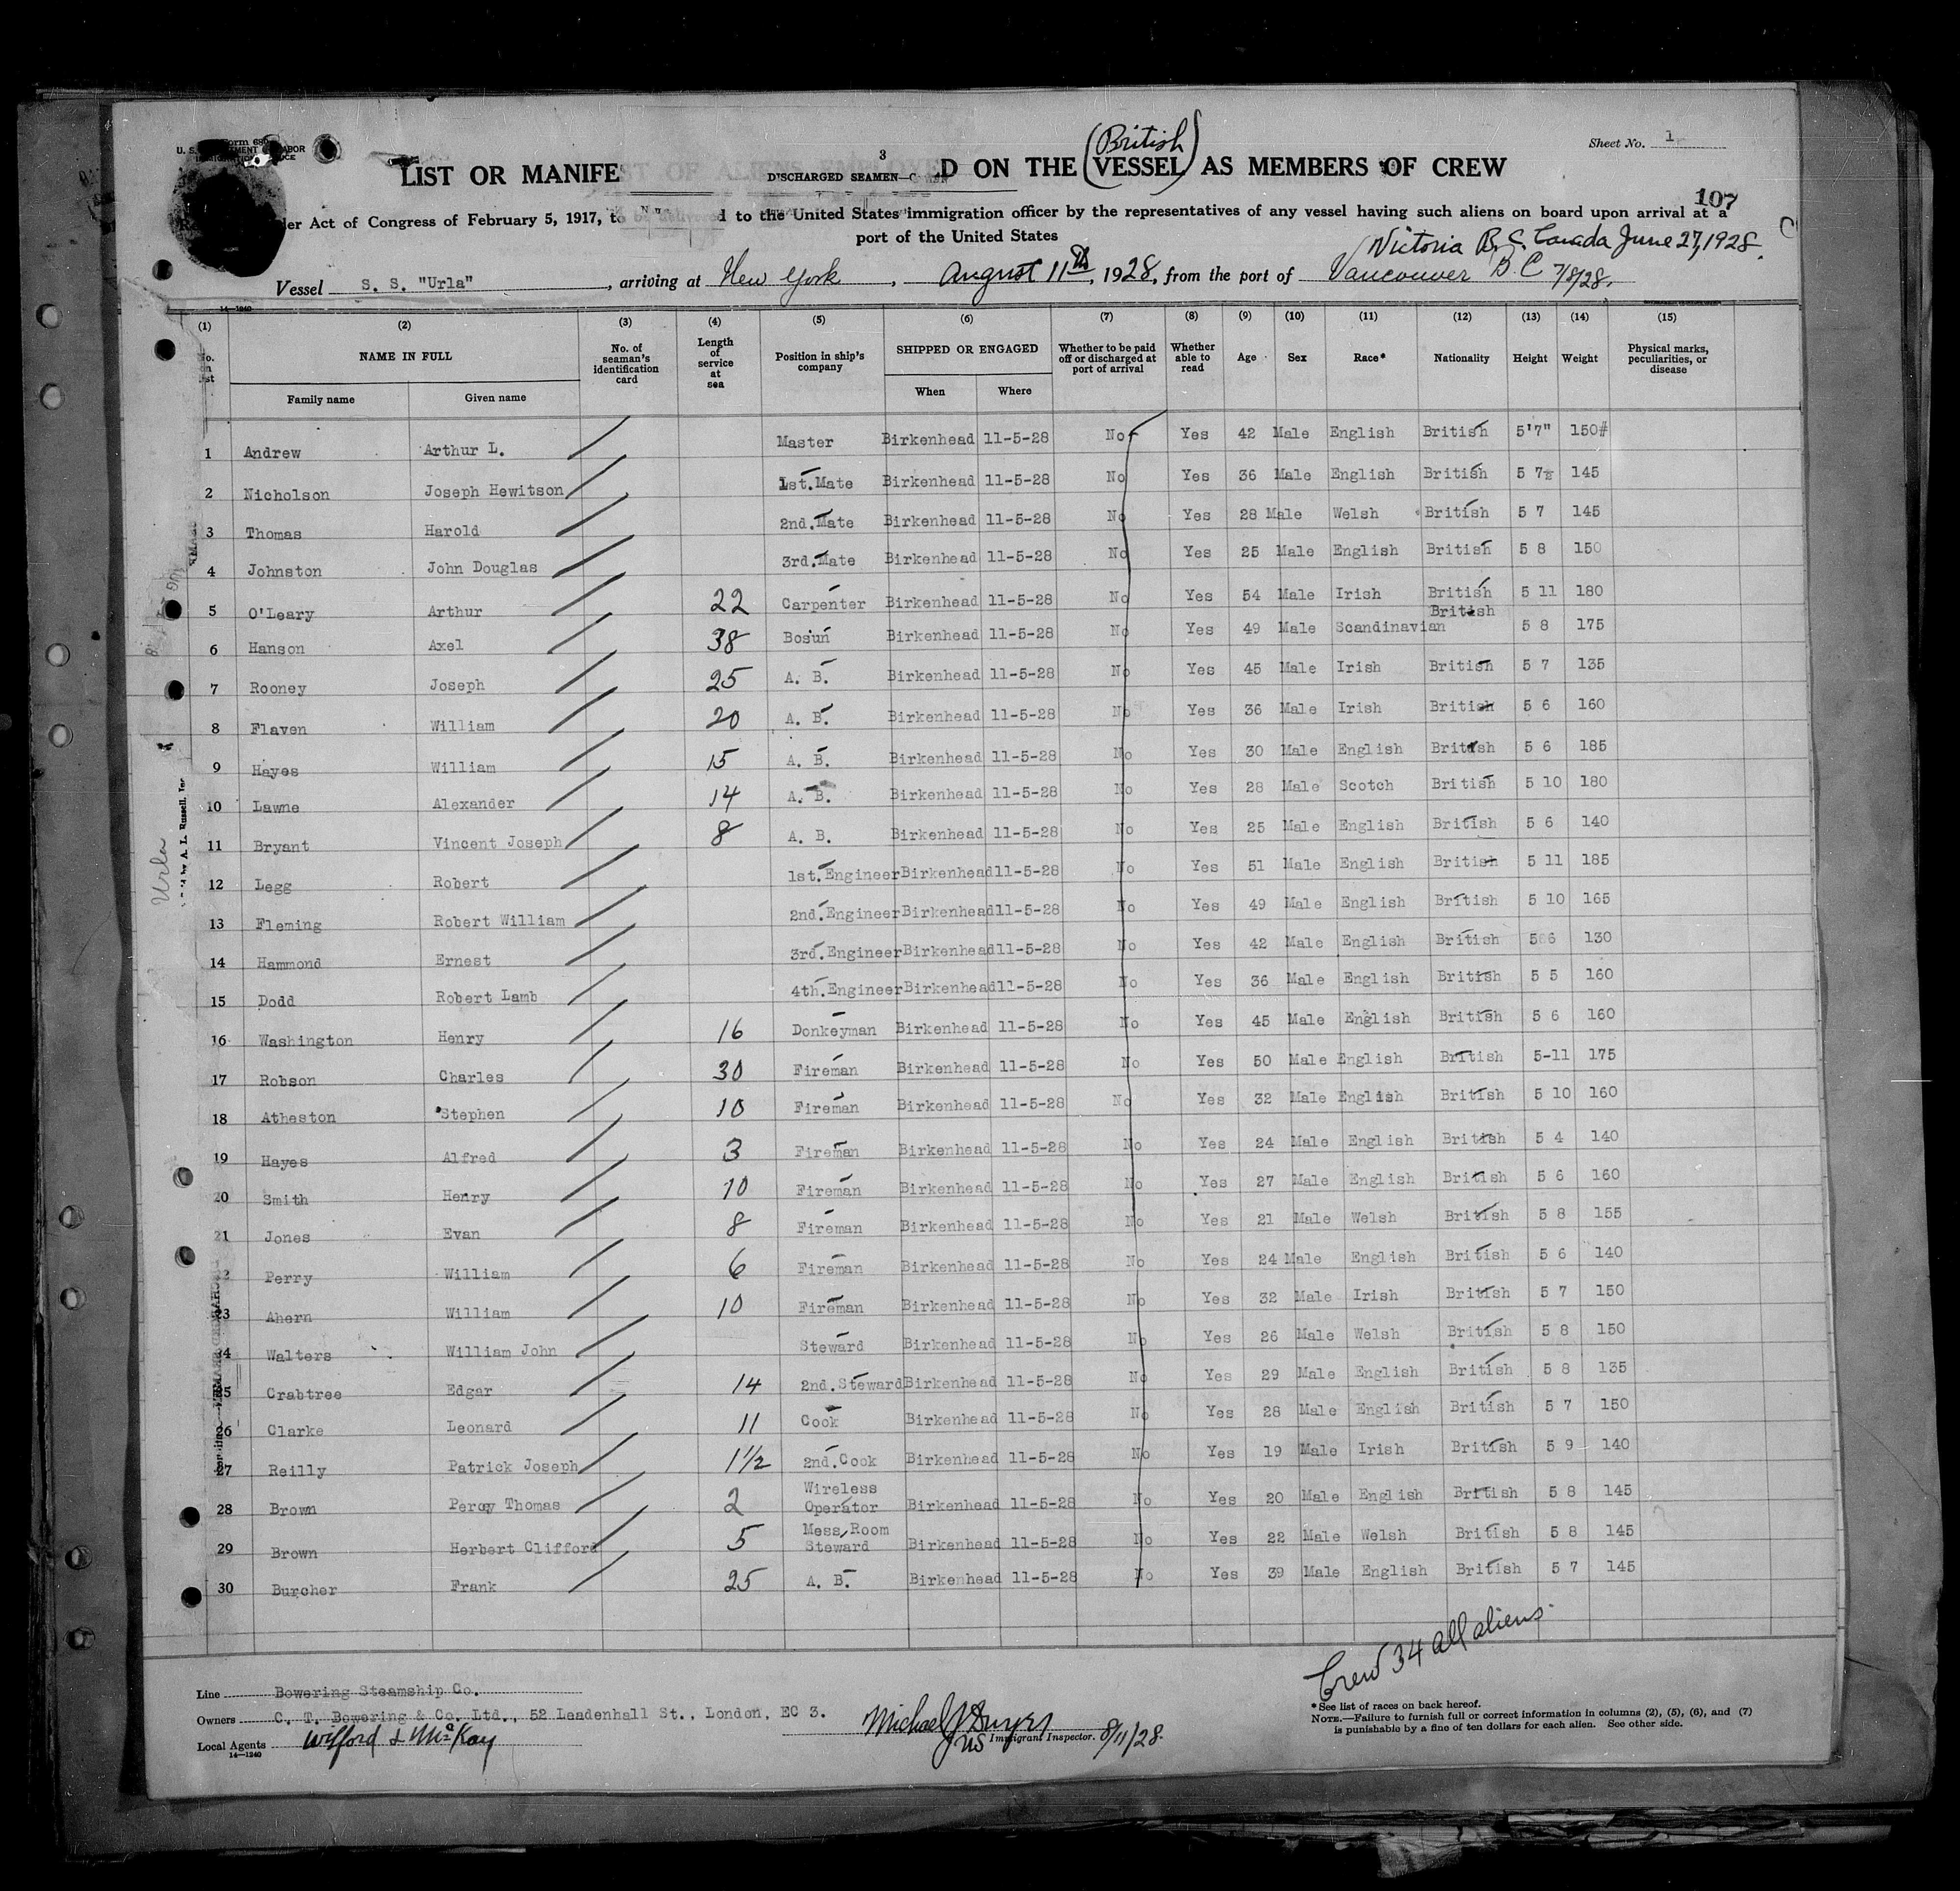 Form 680
Sheet No. 1
(British)
LIST OR MANIFE 3 DISCHARGED SEAMEN D ON THE (VESSEL) AS MEMBERS OF CREW
107
der Act of Congress of February 5, 1917, to be delivered to the United States immigration officer by the representatives of any vessel having such aliens on board upon arrival at a
port of the United States
Victoria B.C. Canada June 27, 1928.
Vessel S. S. "Urla", arriving at New York, August 11th, 1928, from the port of Vancouver B.C 7/8/28.
14—1240
(1) (2) (3) (4) (5) (6) (7) (8) (9) (10) (11) (12) (13) (14) (15)
NAME IN FULL No. of seaman's identification card Length of service at sea Position in ship's company SHIPPED OR ENGAGED Whether to be paid off or discharged at port of arrival Whether able to read Age Sex Race* Nationality Height Weight Physical marks, peculiarities, or disease
Family name Given name When Where
1 Andrew Arthur L. Master Birkenhead 11-5-28 No Yes 42 Male English British 5'7" 150#
2 Nicholson Joseph Hewitson 1st.Mate Birkenhead 11-5-28 No Yes 36 Male English British 5 7½ 145
3 Thomas Harold 2nd.Mate Birkenhead 11-5-28 No Yes 28 Male Welsh British 5 7 145
4 Johnston John Douglas 3rd.Mate Birkenhead 11-5-28 No Yes 25 Male English British 5 8 150
5 O'Leary Arthur 22 Carpenter Birkenhead 11-5-28 No Yes 54 Male Irish British 5 11 180
6 Hanson Axel 38 Bosun Birkenhead 11-5-28 No Yes 49 Male Scandinavian British 5 8 175
7 Rooney Joseph 25 A. B. Birkenhead 11-5-28 No Yes 45 Male Irish British 5 7 135
8 Flaven William 20 A. B. Birkenhead 11-5-28 No Yes 36 Male Irish British 5 6 160
9 Hayes William 15 A. B. Birkenhead 11-5-28 No Yes 30 Male English British 5 6 185
10 Lawne Alexander 14 A. B. Birkenhead 11-5-28 No Yes 28 Male Scotch British 5 10 180
11 Bryant Vincent Joseph 8 A. B. Birkenhead 11-5-28 No Yes 25 Male English British 5 6 140
12 Legg Robert 1st.Engineer Birkenhead 11-5-28 No Yes 51 Male English British 5 11 185
13 Fleming Robert William 2nd.Engineer Birkenhead 11-5-28 No Yes 49 Male English British 5 10 165
14 Hammond Ernest 3rd.Engineer Birkenhead 11-5-28 No Yes 42 Male English British 5 6 130
15 Dodd Robert Lamb 4th.Engineer Birkenhead 11-5-28 No Yes 36 Male English British 5 5 160
16 Washington Henry 16 Donkeyman Birkenhead 11-5-28 No Yes 45 Male English British 5 6 160
17 Robson Charles 30 Fireman Birkenhead 11-5-28 No Yes 50 Male English British 5-11 175
18 Atheston Stephen 10 Fireman Birkenhead 11-5-28 No Yes 32 Male English British 5 10 160
19 Hayes Alfred 3 Fireman Birkenhead 11-5-28 No Yes 24 Male English British 5 4 140
20 Smith Henry 10 Fireman Birkenhead 11-5-28 No Yes 27 Male English British 5 6 160
21 Jones Evan 8 Fireman Birkenhead 11-5-28 No Yes 21 Male Welsh British 5 8 155
2 Perry William 6 Fireman Birkenhead 11-5-28 No Yes 24 Male English British 5 6 140
3 Ahern William 10 Fireman Birkenhead 11-5-28 No Yes 32 Male Irish British 5 7 150
4 Walters William John Steward Birkenhead 11-5-28 No Yes 26 Male Welsh British 5 8 150
5 Crabtree Edgar 14 2nd.Steward Birkenhead 11-5-28 No Yes 29 Male English British 5 8 135
6 Clarke Leonard 11 Cook Birkenhead 11-5-28 No Yes 28 Male English British 5 7 150
27 Reilly Patrick Joseph 1½ 2nd.Cook Birkenhead 11-5-28 No Yes 19 Male Irish British 5 9 140
28 Brown Percy Thomas 2 Wireless Operator Birkenhead 11-5-28 No Yes 20 Male English British 5 8 145
29 Brown Herbert Clifford 5 Mess Room Steward Birkenhead 11-5-28 No Yes 22 Male Welsh British 5 8 145
30 Burcher Frank 25 A. B. Birkenhead 11-5-28 No Yes 39 Male English British 5 7 145
Urla
Crew 34 all aliens.
Line Bowering Steamship Co.
Owners C. T. Bowering & Co. Ltd., 52 Leadenhall St., London, EC 3.
Local Agents Wilford & McKay
14—1240
Michael J Dwyer
US Immigrant Inspector. 8/11/28.
* See list of races on back hereof.
NOTE.—Failure to furnish full or correct information in columns (2), (5), (6), and (7)
is punishable by a fine of ten dollars for each alien. See other side.